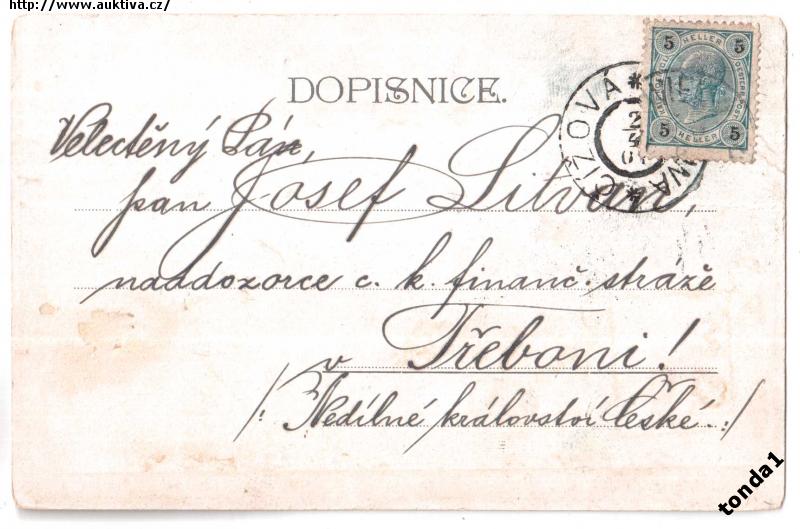 http://www.auktiva.cz/
5 HELLER 5
5 HELLER 5
DOPISNICE.
ČÍZOVÁ
2
01
Velectěný Pán,
pan Josef Litvan,
naddozorce c. k. finanč. stráže
v Třeboni!
/: Nedílné království České :/
tonda1